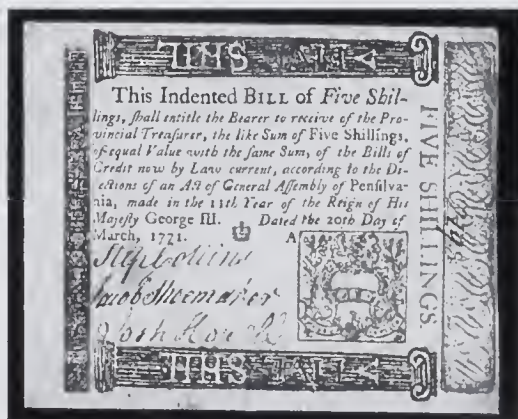 This Indented BILL of Five Shil-
lings, ſhall entitle the Bearer to receive of the Pro-
vincial Treaſurer, the like Sum of Five Shillings,
of equal Value with the ſame Sum, of the Bills of
Credit now by Law current, according to the Di-
rections of an Act of General Aſſembly of Penſilva-
nia, made in the 11th Year of the Reign of His
Majeſty George III. Dated the 20th Day of
March, 1771. A
Collins
Jacob Shoemaker
FIVE SHILLINGS.